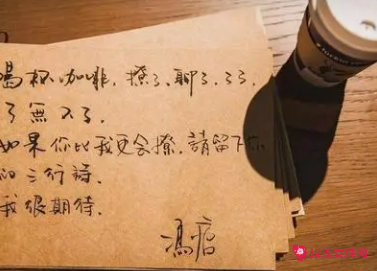 喝杯咖啡,撩了,聊了,了了,
了無入了,
如果你比我更会撩,請留下你
的三行詩,
我很期待,
馮唐